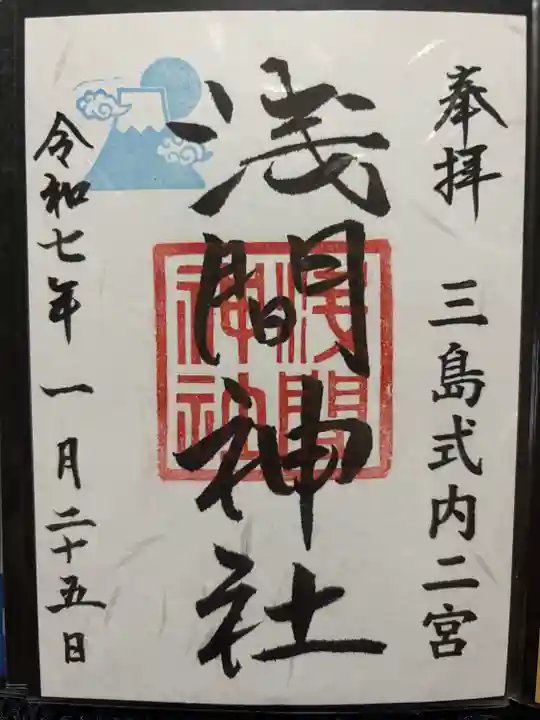 奉拝 三島式内二宮
浅間神社
令和七年一月二十五日